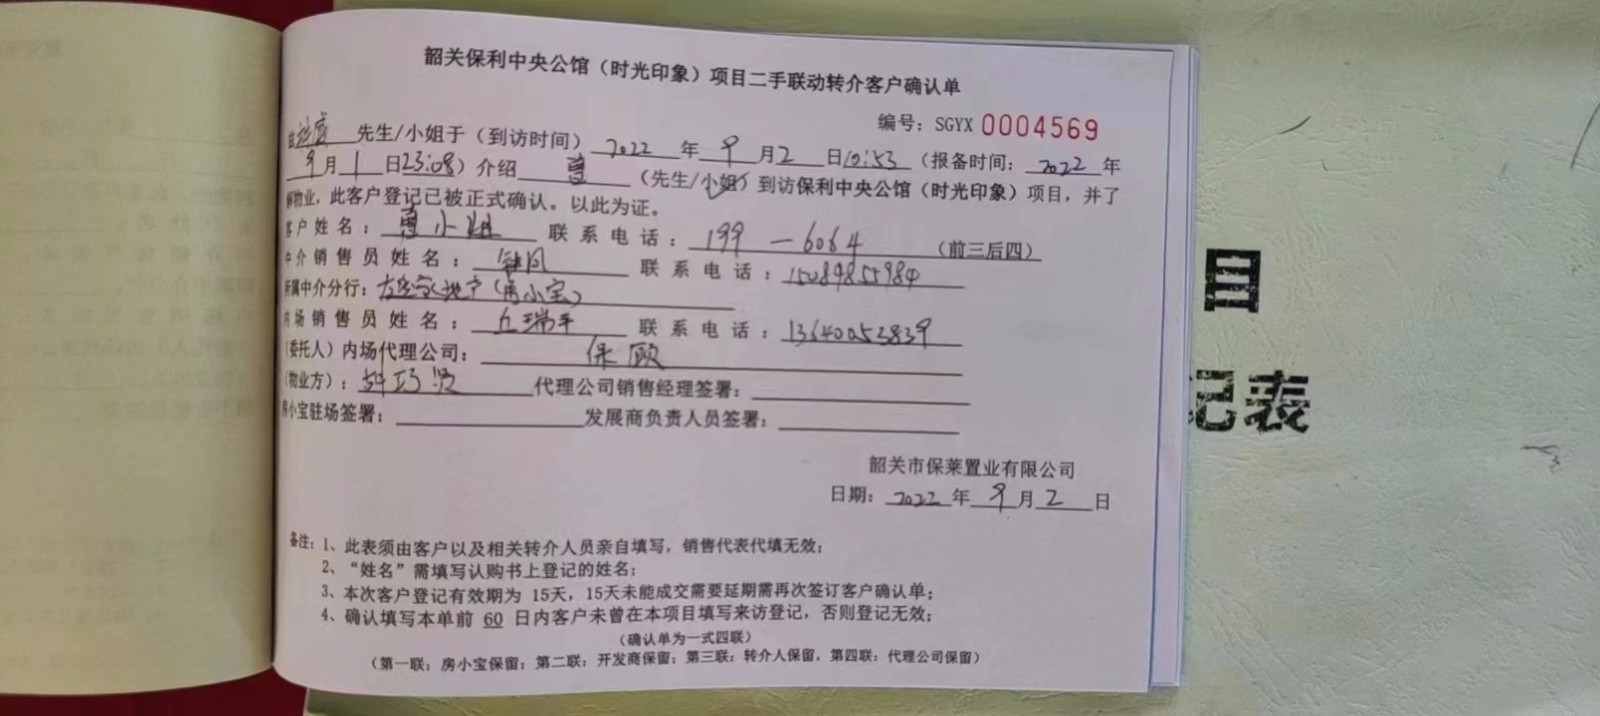 韶关保利中央公馆（时光印象）项目二手联动转介客户确认单
编号：SGYX 0004569
先生/小姐于（到访时间）2022 年 9 月 2 日10:53（报备时间：2022 年
9 月 1 日23:08）介绍 曾 （先生/小姐）到访保利中央公馆（时光印象）项目，并了
解物业，此客户登记已被正式确认。以此为证。
客户姓名：曾小姐 联系电话：199 — 6064 （前三后四）
中介销售员姓名： 联系电话：15089855984
所属中介分行： 地产（房小宝）
内场销售员姓名：丘瑞平 联系电话：13640053839
（委托人）内场代理公司：保欧
（物业方）： 代理公司销售经理签署：
房小宝驻场签署： 发展商负责人员签署：
韶关市保莱置业有限公司
日期：2022 年 9 月 2 日
备注：1、此表须由客户以及相关转介人员亲自填写，销售代表代填无效；
2、“姓名”需填写认购书上登记的姓名；
3、本次客户登记有效期为 15天，15天未能成交需要延期需再次签订客户确认单；
4、确认填写本单前 60 日内客户未曾在本项目填写来访登记，否则登记无效；
（确认单为一式四联）
（第一联：房小宝保留；第二联：开发商保留；第三联：转介人保留，第四联：代理公司保留）
目
记表